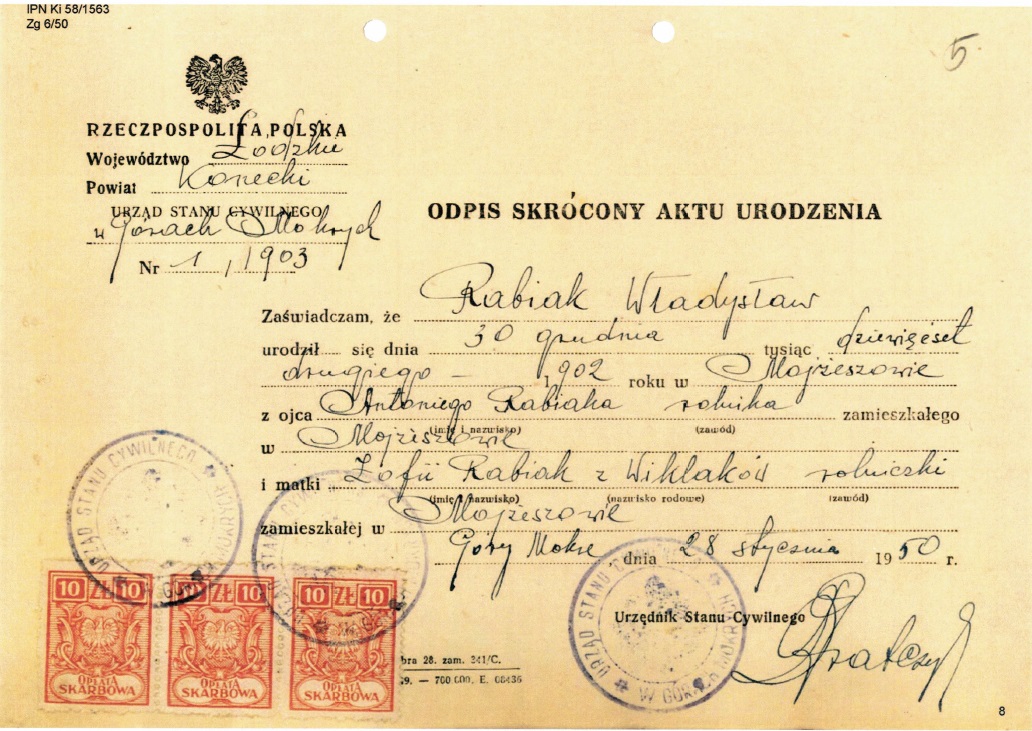 IPN Ki 58/1563
Zg 6/50
5
RZECZPOSPOLITA POLSKA
Województwo Łódzkie
Powiat Konecki
URZĄD STANU CYWILNEGO
w Górach Mokrych
Nr 1, 1903
ODPIS SKRÓCONY AKTU URODZENIA
Zaświadczam, że Rabiak Władysław
urodził się dnia 30 grudnia tysiąc dziewięćset
drugiego — 1902 roku w Mojżeszowie
z ojca Antoniego Rabiaka rolnika zamieszkałego
(imię i nazwisko) (zawód)
w Mojżeszowie
i matki Zofii Rabiak z Wiklaków rolniczki
(imię i nazwisko) (nazwisko rodowe) (zawód)
zamieszkałej w Mojżeszowie
Góry Mokre dnia 28 stycznia 1950 r.
Urzędnik Stanu Cywilnego
URZĄD STANU CYWILNEGO
W GÓRACH MOKRYCH
10 ZŁ 10 10 ZŁ 10 10 ZŁ 10
OPŁATA SKARBOWA OPŁATA SKARBOWA OPŁATA SKARBOWA
bra 28. zam. 341/C.
49. — 700 000. E. 08436
8